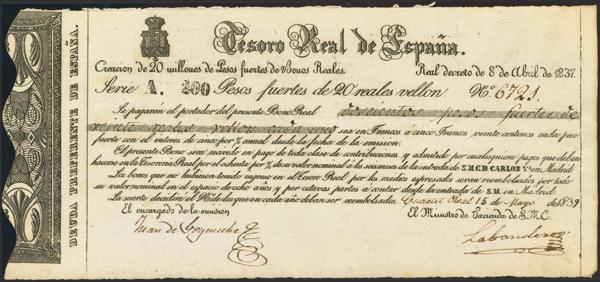 Tesoro Real de España.
Creacion de 20 millones de Pesos fuertes de Bonos Reales. Real decreto de 8 de Abril de 1837.
Serie A. 200 Pesos fuertes de 20 reales vellon: No. 6721.
Se pagarán al portador del presente Bono Real doscientos pesos fuertes de
veinte reales vellon cada uno sea en Francos á cinco Francos veinte centimos cada peso
fuerte con el interes de cinco por % anual desde la fecha de la emision.
El presente Bono será recibido en pago de toda clase de contribuciones y admitido por cualesquiera pagos que deban
hacerse en la Tesoreria Real por el ochenta por % de su valor nominal de la entrada de S.M.C.D CARLOS V.º en Madrid
Los bonos que no hubiesen tenido ingreso en el Tesoro Real por los medios expresados seran reembolsados por todo
su valor nominal en el espacio de ocho años y por octavas partes á contar desde la entrada de S.M. en Madrid.
La suerte decidirá el No. de los que en cada año deban ser reembolsados. Cuartel Real 15 de Mayo de 1839
El encargado de la emision El Ministro de Hacienda de S.M.C.
Juan de Goyeneche Labandero
DEUDA PREFERENTE DE ESPAÑA.